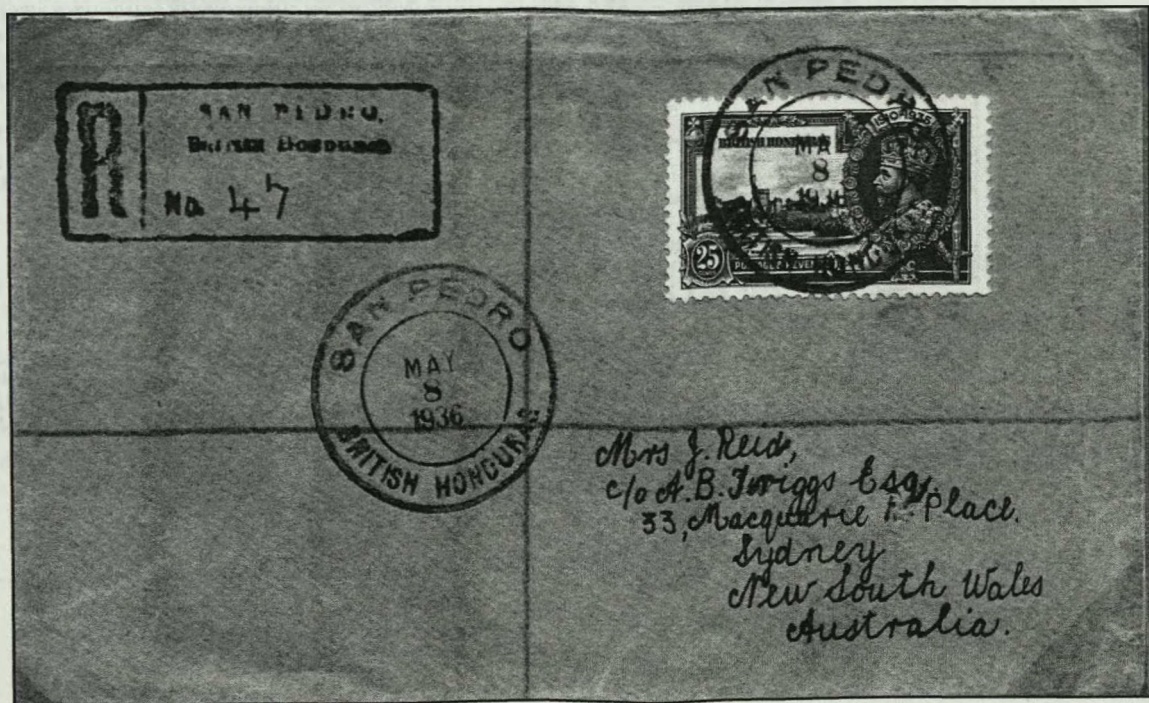 R
SAN PEDRO,
British Honduras
No 47
SAN PEDRO
MAY
8
1936
BRITISH HONDURAS
SAN PEDR
MA
8
1936
BRITISH HONDURAS
1910 1935
25
Mrs J. Reid,
c/o A. B. Twiggs Esq.
33, Macquarie Place.
Sydney
New South Wales
Australia.